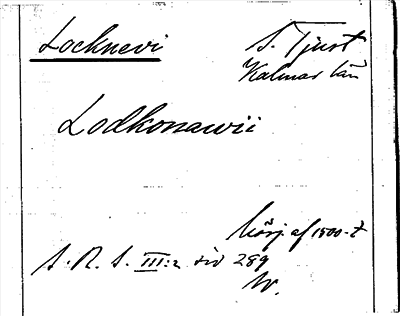 Locknevi
S. Tjust
Kalmar län
Lodkonawii
börj. af 1500-t
S. R. S. III:2 sid 289
W.